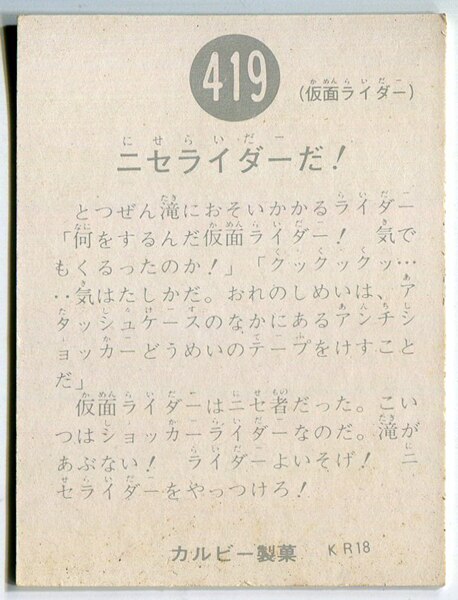 419
(仮面ライダー)
ニセライダーだ!
とつぜん滝におそいかかるライダー
「何をするんだ仮面ライダー! 気で
もくるったのか!」「クックックッ…
‥気はたしかだ。おれのしめいは、ア
タッシュケースのなかにあるアンチシ
ョッカーどうめいのテープをけすこと
だ」
仮面ライダーはニセ者だった。こい
つはショッカーライダーなのだ。滝が
あぶない! ライダーよいそげ! ニ
セライダーをやっつけろ!
カルビー製菓 KR18